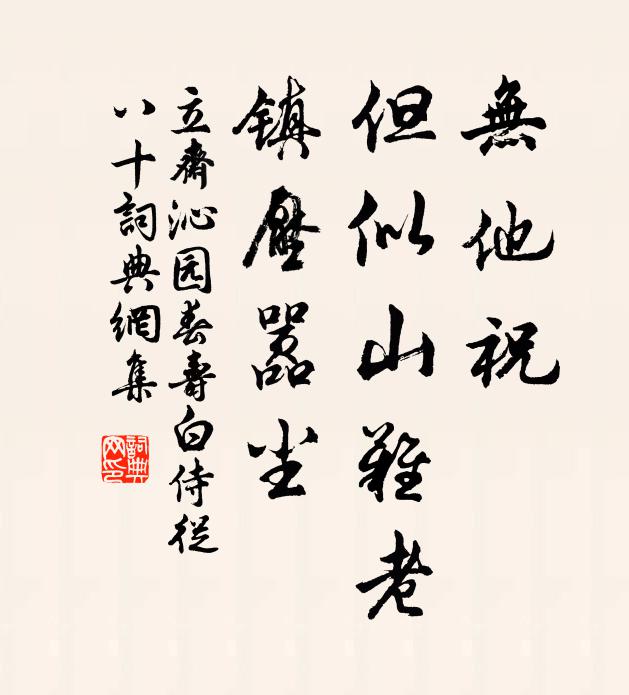 無他祝
但似山難老
镇壓囂尘
立齋沁园春壽白侍從
八十詞典網集
詞典网印